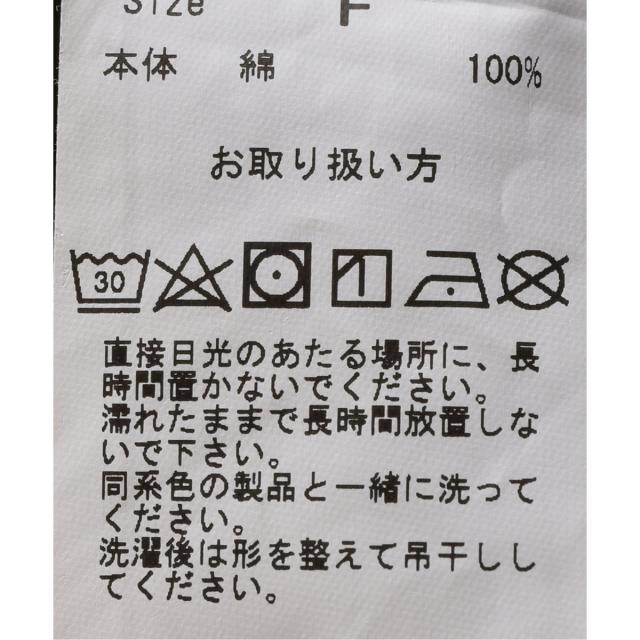 Size F
本体 綿 100%
お取り扱い方
30
直接日光のあたる場所に、長
時間置かないでください。
濡れたままで長時間放置しな
いで下さい。
同系色の製品と一緒に洗って
ください。
洗濯後は形を整えて吊干しし
てください。